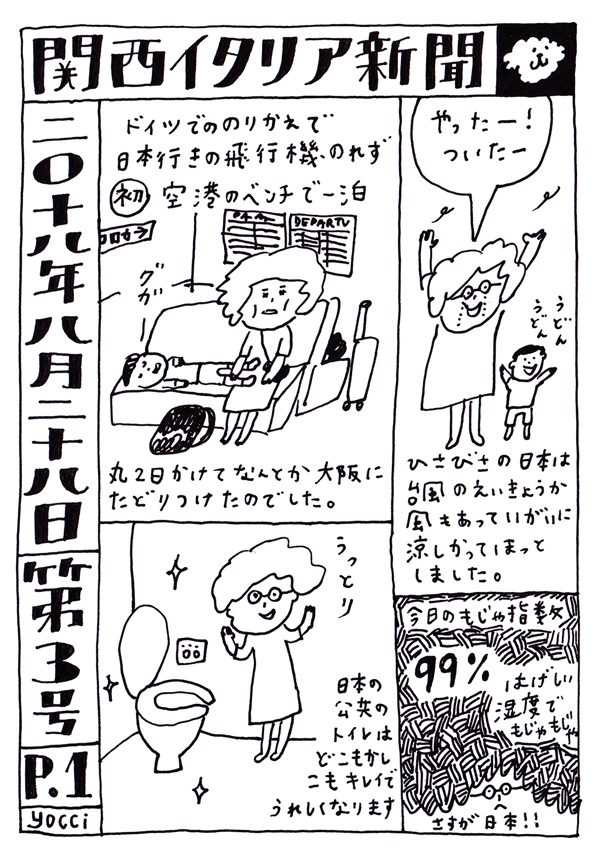 関西イタリア新聞
二〇十八年八月二十八日
第3号
P.1
yocci
ドイツでののりかえで
日本行きの飛行機、のれず
初 空港のベンチで一泊
DEPARTU
グガー
丸2日かけてなんとか大阪に
たどりつけたのでした。
やったー!
ついたー
うどん
うどん
ひさびさの日本は
台風のえいきょうか
風もあっていがいに
涼しかってほっと
しました。
うっとり
日本の
公共の
トイレは
どこもかし
こもキレイで
うれしくなります
今日のもじゃ指数
99%
はげしい
湿度で
もじゃもじゃ
さすが日本!!